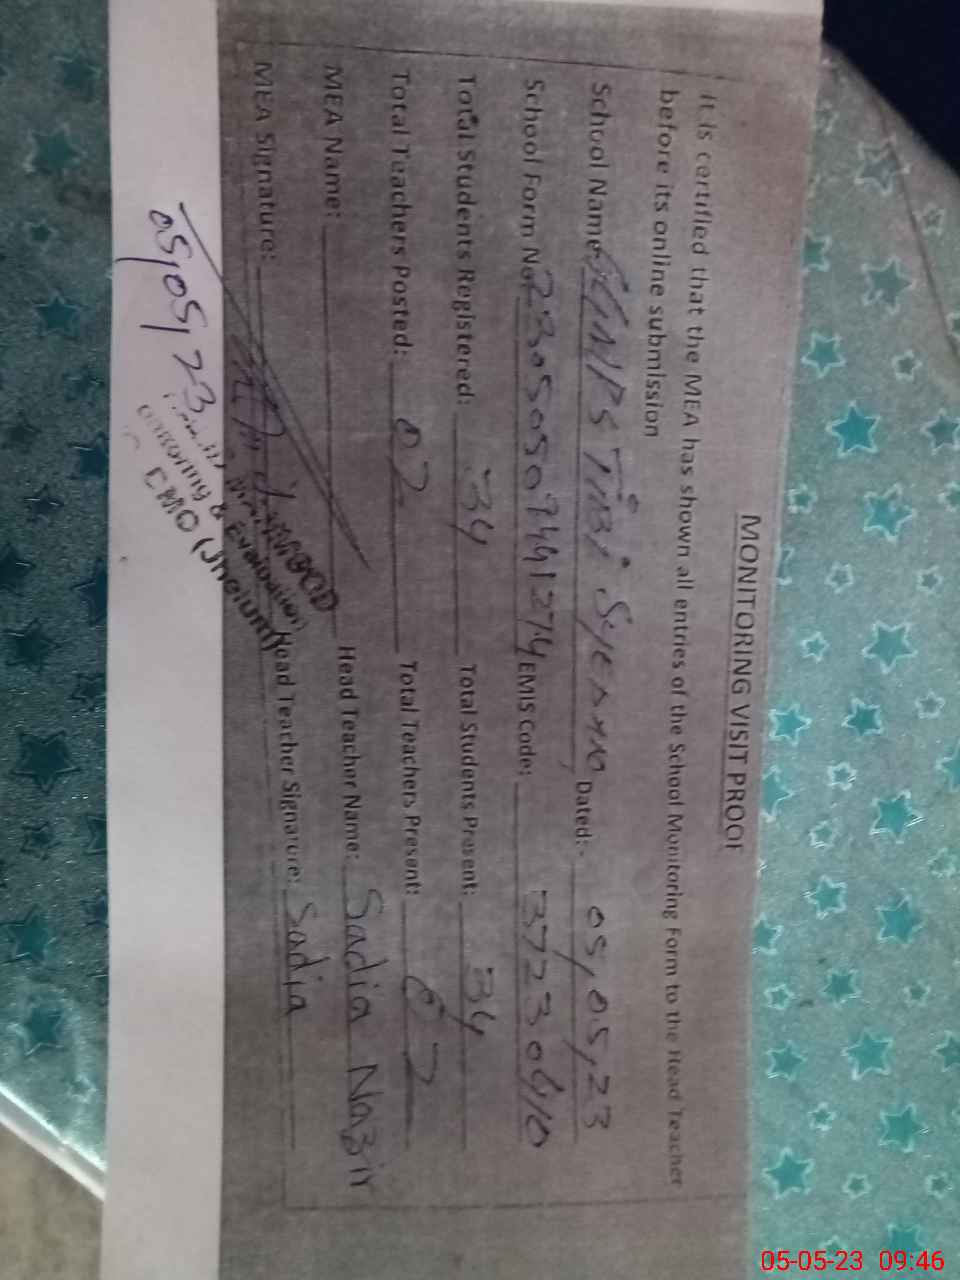 MONITORING VISIT PROOF
It is certified that the MEA has shown all entries of the School Monitoring Form to the Head Teacher
before its online submission
School Name: Tibi Syedan Dated:- 05,05,23
School Form No. EMIS Code: 37230410
Total Students Registered: 34 Total Students Present: 34
Total Teachers Posted: 02 Total Teachers Present: 02
MEA Name: Head Teacher Name: Sadia Nazir
MEA Signature: Head Teacher Signature: Sadia
05,05,23
Monitoring & Evaluation
CMO (Jhelum)
05-05-23 09:46